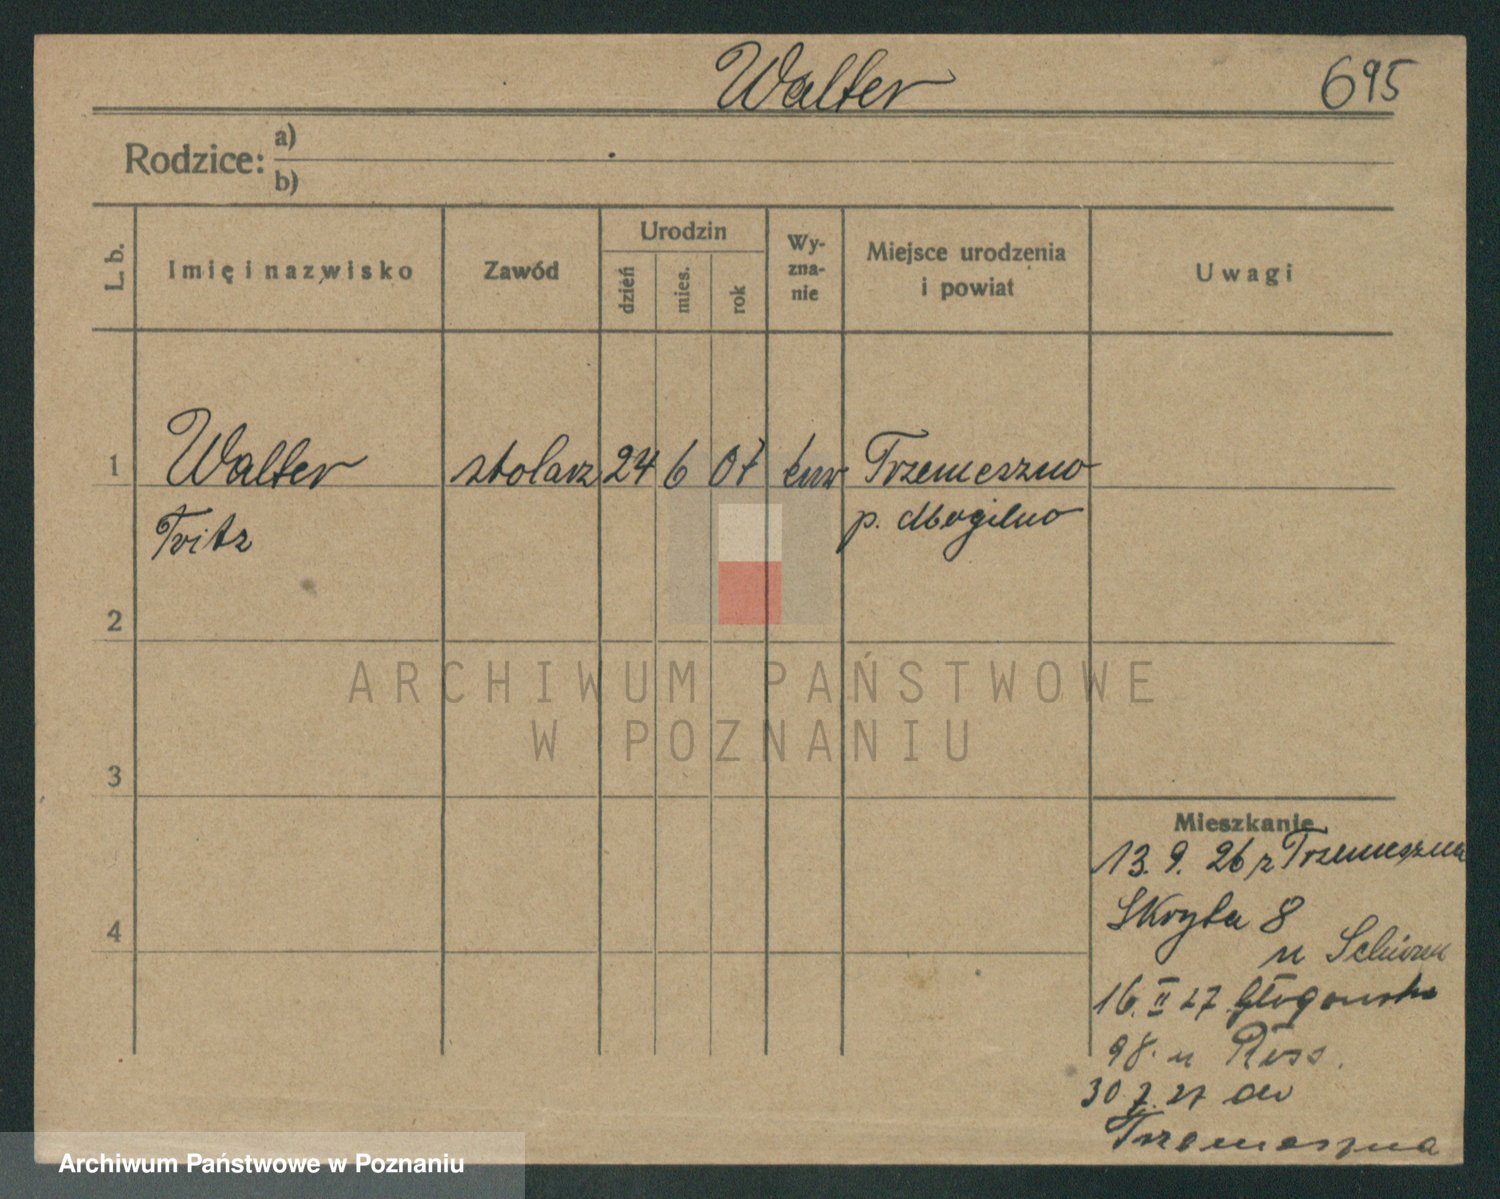 Walter 695
Rodzice: a)
b)
L. b. Imię i nazwisko Zawód Urodzin dzień mies. rok Wy-zna-nie Miejsce urodzenia i powiat Uwagi
1 Walter stolarz 24 6 07 ew Trzemeszno
Fritz p. Mogilno
2
ARCHIWUM PAŃSTWOWE
W POZNANIU
3
Mieszkanie
13. 9. 26 z Trzemeszna
Skryta 8
4
u
16. II 27 Głogowska
98. u Riss.
30. 7. 27 do
Trzemeszna
Archiwum Państwowe w Poznaniu